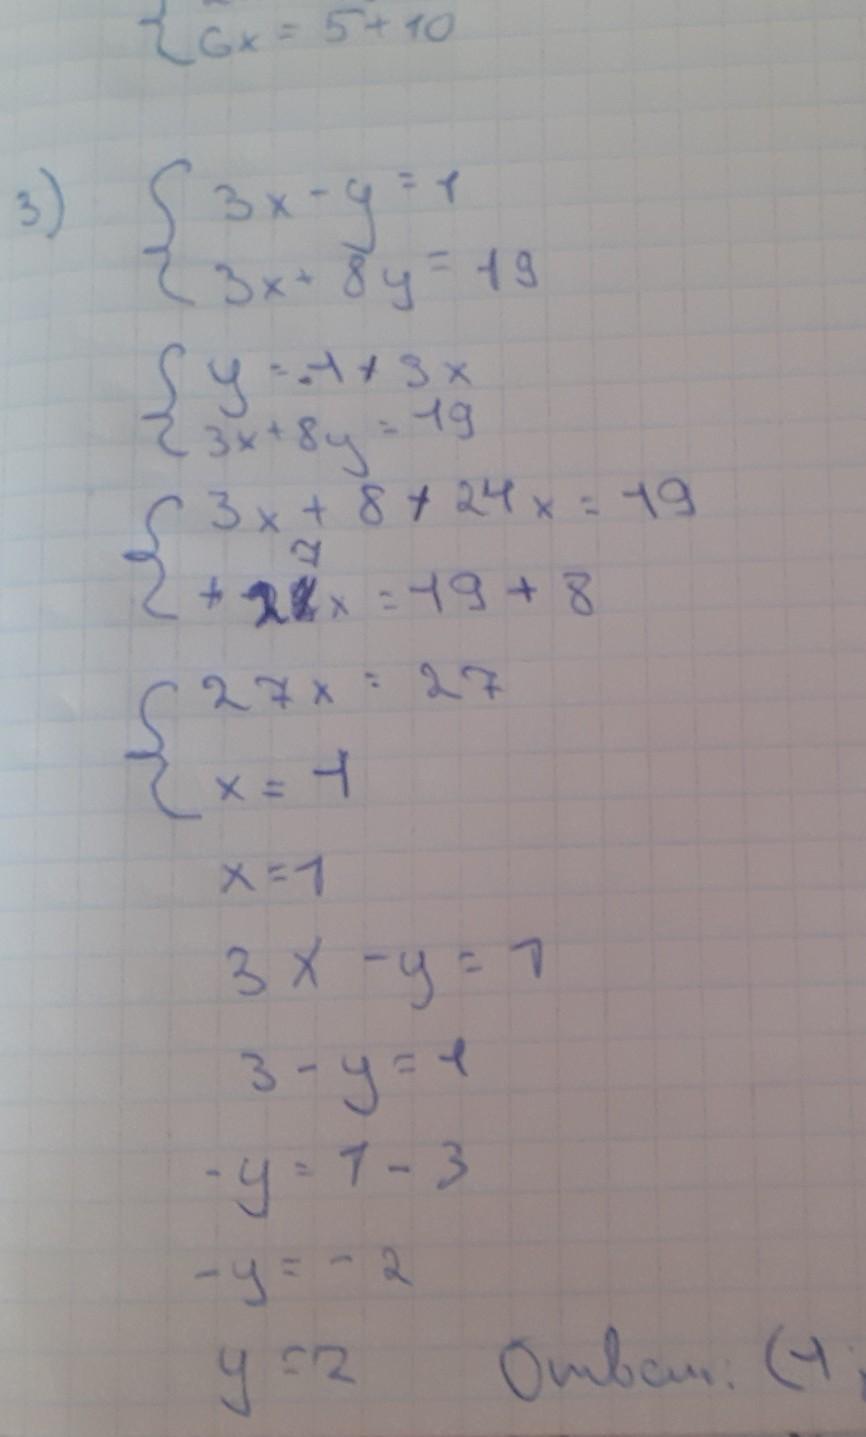 6x = 5 + 10
3)
3x - y = 1
3x + 8y = 19
y = -1 + 3x
3x + 8y = 19
3x + 8 + 24x = 19
+ 27x = 19 + 8
27x = 27
x = 1
x = 1
3x - y = 1
3 - y = 1
-y = 1 - 3
-y = -2
y = 2 Ответ: (1;